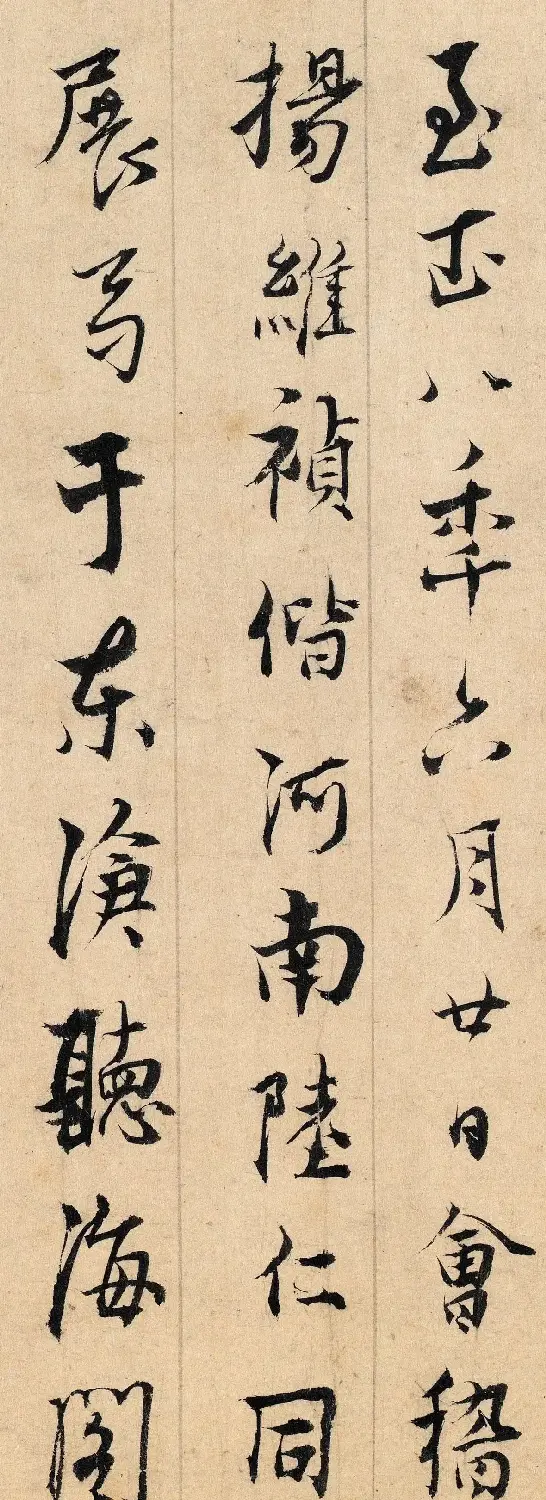 至正八季六月廿日會稽
楊維禎偕河南陸仁同
展卷于東滄聽海閣